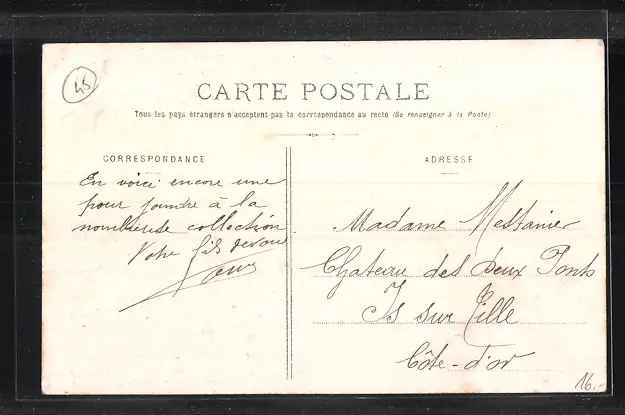 45
CARTE POSTALE
Tous les pays étrangers n'acceptent pas la correspondance au recto (Se renseigner à la Poste)
CORRESPONDANCE
En voici encore une
pour joindre à la
nombreuse collection
Votre fils dévoué
ADRESSE
Madame Messanier
Château des Deux Ponts
Is sur Tille
Côte-d'or
16.-